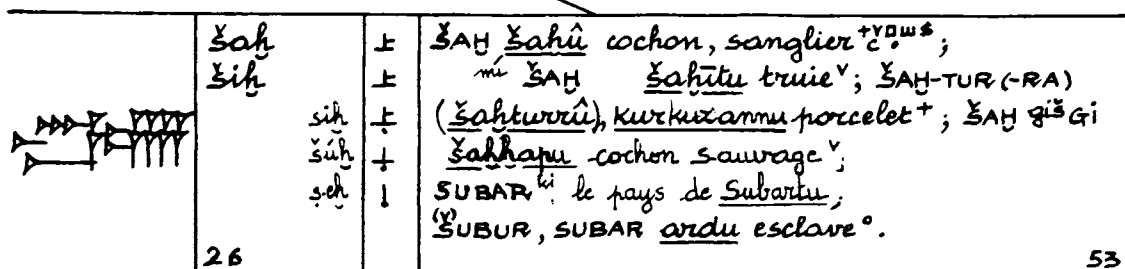 šaḫ ŠAḪ šaḫû cochon, sanglier ;
šiḫ mí ŠAḪ šaḫītu truie ᵛ ; ŠAḪ-TUR (-RA)
siḫ (šaḫturrû), kurkuzannu porcelet ⁺ ; ŠAḪ giš Gi
šúḫ šaḫḫapu cochon sauvage ᵛ ;
ṣeḫ SUBAR ki le pays de Subartu,
(v) SUBUR, SUBAR ardu esclave °.
26 53